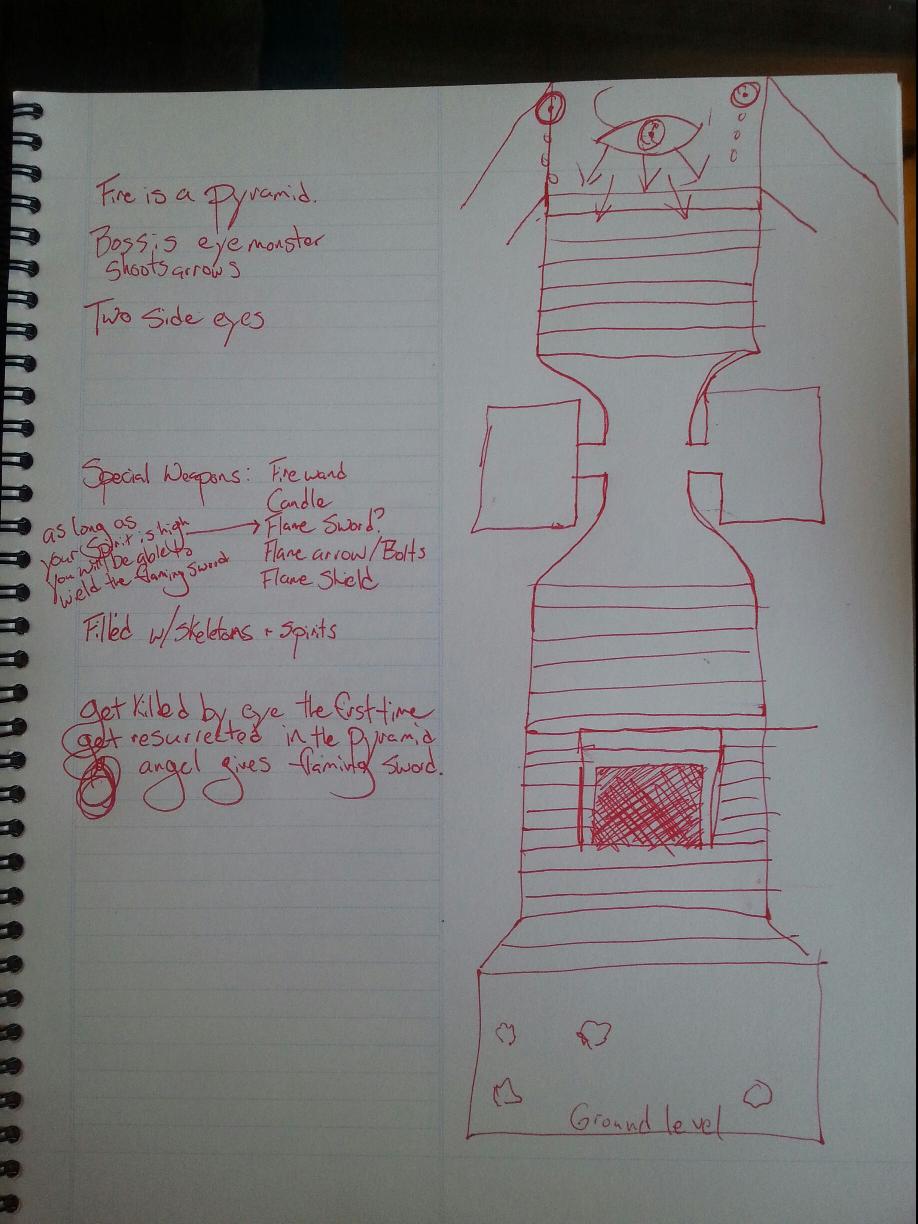 Fire is a pyramid.
Boss is eye monster
shoots arrows
Two side eyes
Special Weapons: Fire wand
Candle
Flame Sword?
Flame arrow/Bolts
Flame Shield
as long as
your Spirit is high
you will be able to
wield the flaming sword
Filled w/ Skeletons + Spirits
get killed by eye the first time
get resurrected in the pyramid
angel gives flaming sword.
Ground level